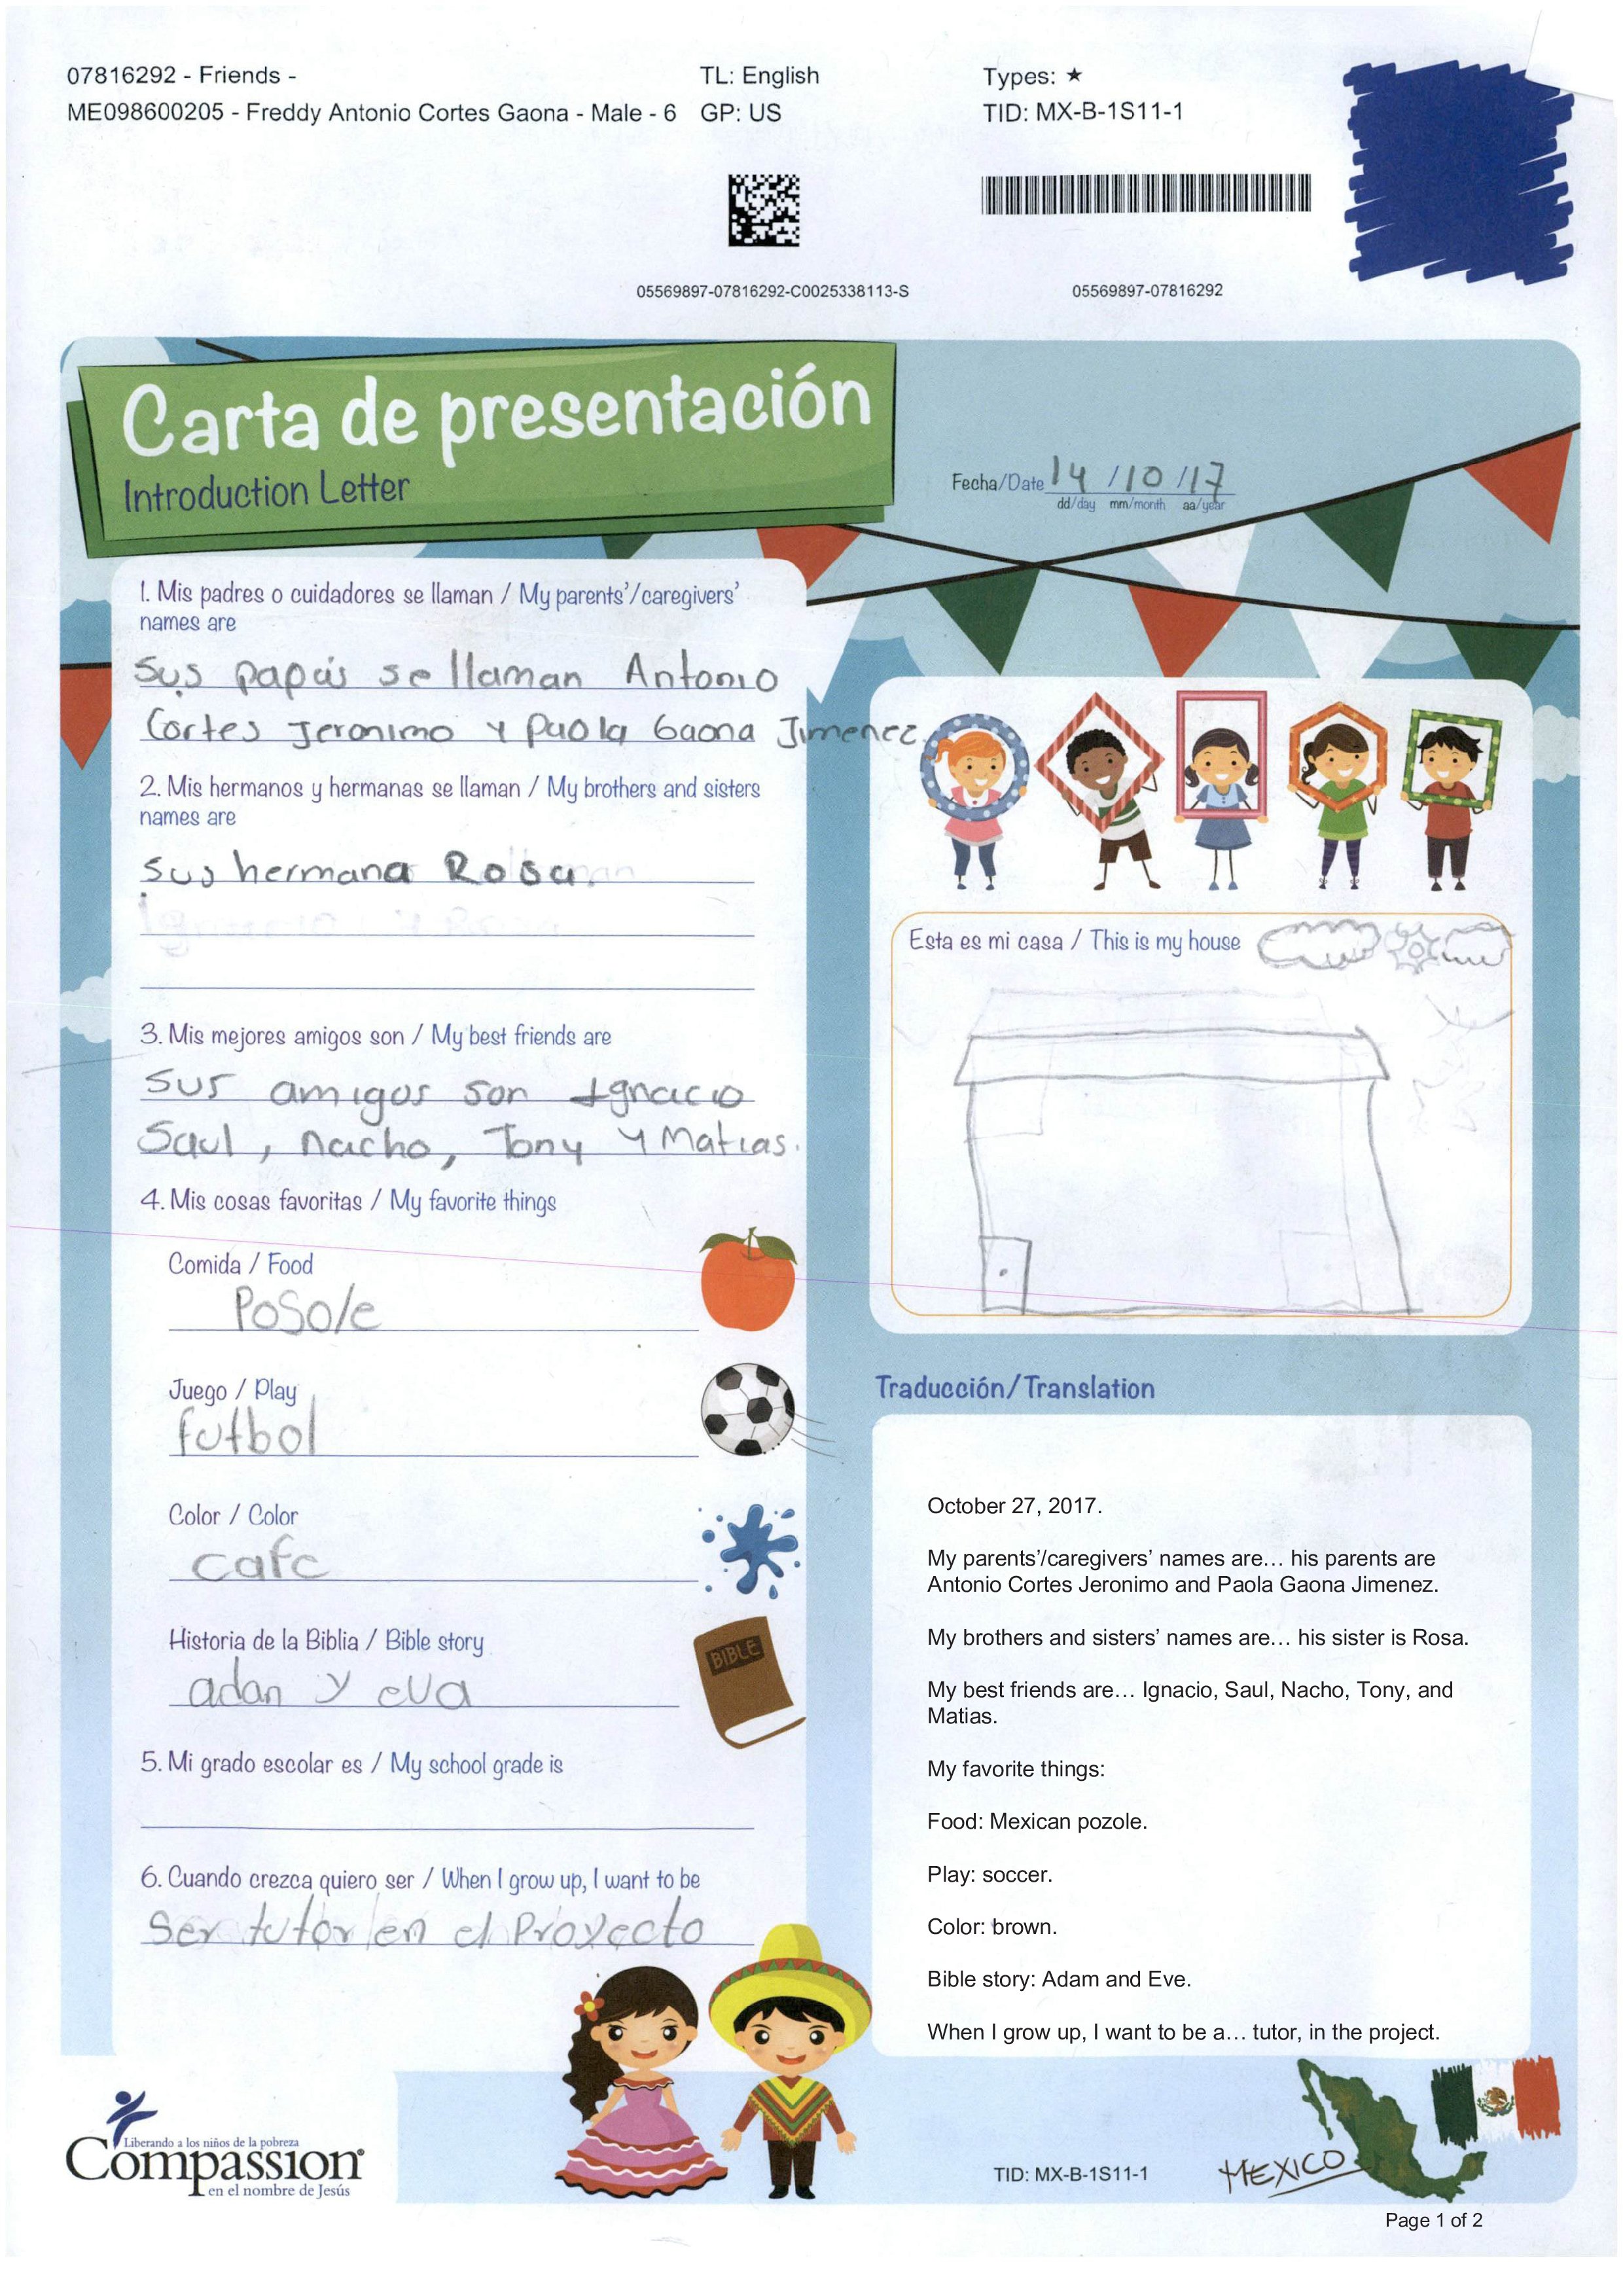 07816292 - Friends -
TL: English
Types: ★
ME098600205 - Freddy Antonio Cortes Gaona - Male - 6
GP: US
TID: MX-B-1S11-1
05569897-07816292-C0025338113-S
05569897-07816292
Carta de presentación
Introduction Letter
Fecha/Date 14 /10 /17
dd/day mm/month aa/year
1. Mis padres o cuidadores se llaman / My parents'/caregivers'
names are
Sus papás se llaman Antonio
Cortes Jeronimo y Paola Gaona Jimenez.
2. Mis hermanos y hermanas se llaman / My brothers and sisters
names are
Sus hermana Rosa.
3. Mis mejores amigos son / My best friends are
Sus amigos son Ignacio
Saul, nacho, Tony y Matias.
4. Mis cosas favoritas / My favorite things
Comida / Food
Posole
Juego / Play
futbol
Color / Color
cafe
Historia de la Biblia / Bible story
adan y eva
BIBLE
5. Mi grado escolar es / My school grade is
6. Cuando crezca quiero ser / When I grow up, I want to be
Ser tutor en el Proyecto
Esta es mi casa / This is my house
Traducción/Translation
October 27, 2017.
My parents'/caregivers' names are… his parents are
Antonio Cortes Jeronimo and Paola Gaona Jimenez.
My brothers and sisters' names are… his sister is Rosa.
My best friends are… Ignacio, Saul, Nacho, Tony, and
Matias.
My favorite things:
Food: Mexican pozole.
Play: soccer.
Color: brown.
Bible story: Adam and Eve.
When I grow up, I want to be a… tutor, in the project.
Liberando a los niños de la pobreza
Compassion®
en el nombre de Jesús
TID: MX-B-1S11-1
MEXICO
Page 1 of 2